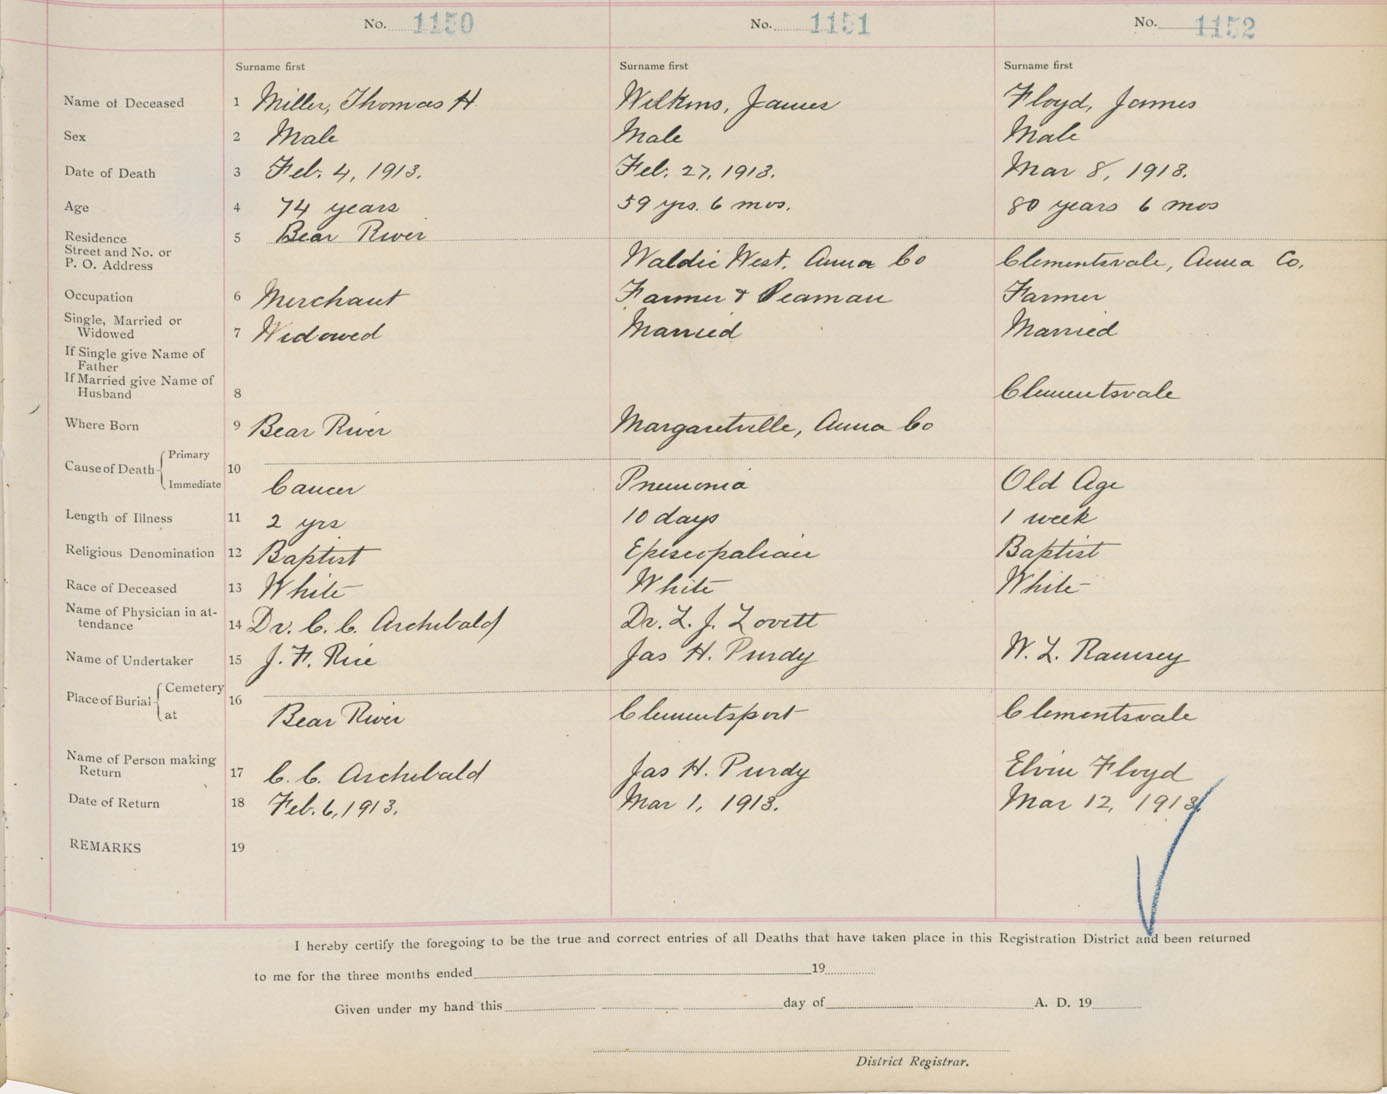 No. 1150 No. 1151 No. 1152
Surname first Surname first Surname first
Name of Deceased 1 Miller, Thomas H Wilkins, James Floyd, James
Sex 2 Male Male Male
Date of Death 3 Feb. 4, 1913. Feb. 27, 1913. Mar 8, 1913.
Age 4 74 years 59 yrs. 6 mos. 80 years 6 mos
Residence 5 Bear River
Street and No. or
P. O. Address Waldic West. Anna Co Clementsvale, Anna Co.
Occupation 6 Merchant Farmer & Seaman Farmer
Single, Married or
Widowed 7 Widowed Married Married
If Single give Name of
Father
If Married give Name of
Husband 8 Clementsvale
Where Born 9 Bear River Margaretville, Anna Co
Cause of Death Primary 10
Immediate Cancer Pneumonia Old Age
Length of Illness 11 2 yrs 10 days 1 week
Religious Denomination 12 Baptist Episcopalian Baptist
Race of Deceased 13 White White White
Name of Physician in at-
tendance 14 Dr. C. C. Archibald Dr. L. J. Lovitt
Name of Undertaker 15 J. F. Rice Jas H. Purdy W. L. Ramsey
Place of Burial Cemetery 16
at Bear River Clementsport Clementsvale
Name of Person making
Return 17 C. C. Archibald Jas H. Purdy Elvin Floyd
Date of Return 18 Feb. 6, 1913. Mar 1, 1913. Mar 12, 1913.
REMARKS 19
I hereby certify the foregoing to be the true and correct entries of all Deaths that have taken place in this Registration District and been returned
to me for the three months ended 19
Given under my hand this day of A. D. 19
District Registrar.